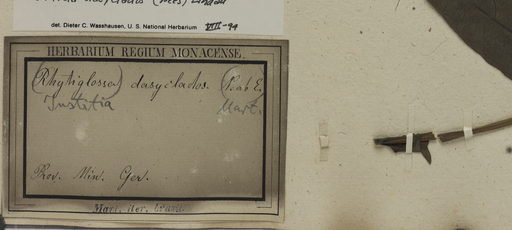 dasyclados (Nees) Lindau
det. Dieter C. Wasshausen, U. S. National Herbarium VIII-94
HERBARIUM REGIUM MONACENSE.
(Rhytiglossa) dasyclados.
Justitia Mart.
Prov. Min. Ger.
Mart. iter. brasil.